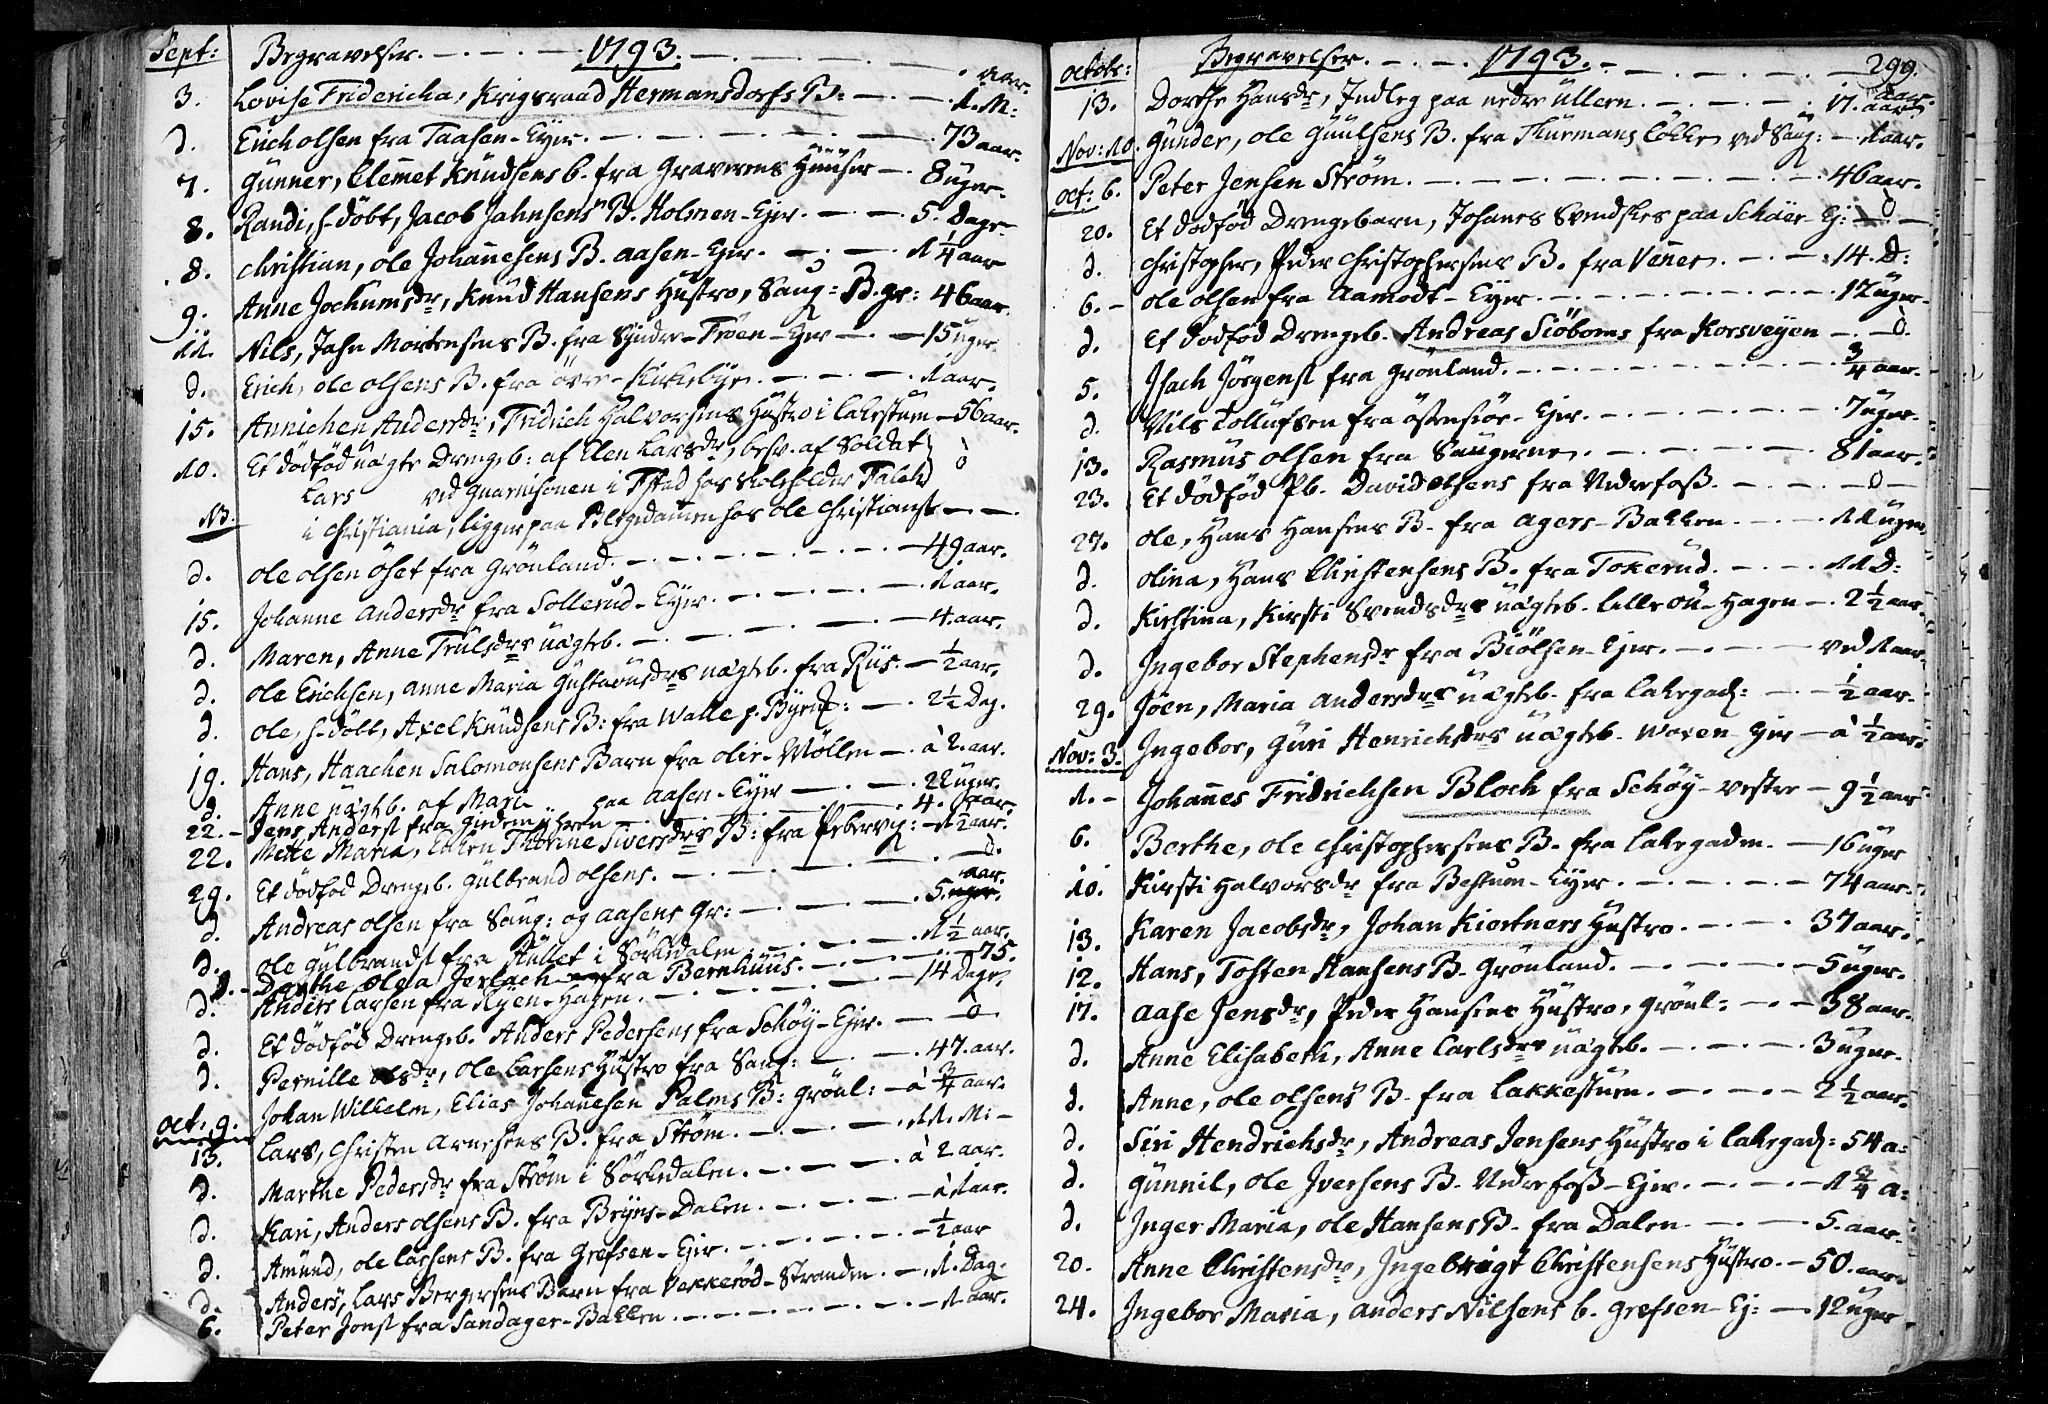 Sept: Begravelser. 1793. aar.
3. Lovise Fridericha, Krigsraad Hermansdorfs B: 1. M:
d. Erich olsen fra Taasen-Eyer. 73 aar.
7. Gunner, Clemet Knudsens b. fra Graverens Huuser 8 uger.
8. Randi, h-döbt, Jacob Jahnsens B. Holmen-Ejer. 5. Dage
8. christian, ole Johannesens B. aasen-Eyer. 1 1/4 aar
9. Anne Jochumsdr, Knud Hansens Hustro, Saug: B. gr: 46 aar.
11. Nils, Jahn Mortensens B. fra Syndre-Tröen-Eyer 15 uger.
d. Erich, ole olsens B. fra övre-Kirkebye. 1 aar.
15. Annichen Andersdr, Fridrich Halvorsens Hustro i lakestum 56 aar.
10. Et dödföd uägte Drengeb: af Elen Larsdr, besv. af Soldat
Lars ved Guarnisonen i hos
NB. i christiania, ligger paa Blegedamen hos ole christians
d. ole olsen öset fra Grönland. 49 aar.
15. Johanne andersdr fra Sollerud-Eyer. 1 aar.
d. Maren, Anne Trulsdrs uägteb. 4. aar.
d. ole Erichsen, anne Maria Gustavusdrs uägteb. fra Riis. 1/2 aar.
d. ole, h-döbt, Axel Knudsens B: fra Walle p. 2 1/2 Dag.
19. Hans, Haachen Salomonsens Barn fra olie-Möllen à 2. aar.
d. Anne uägteb. af Mari paa aasen-Eyer 22 uger.
22. Jens Anderst fra 4. aar.
22. Mette Maria, Thorine Siversdrs B: fra Pebervig: 1 1/2 aar.
29. Et dödföd Drengeb. Gulbrand olsens. 0.
d. Andreas olsen fra Saug: og aasens Gr: 5. aar.
d. ole gulbrandst fra Hullet i Sörkedalen. 1 1/2 aar.
d. Dorthe olea Gerlach fra Bernhuus. 75.
d. Anders Larsen fra Ryen-Hagen. 14 Dage,
d. Et dödföd Drengeb. Anders Pedersens fra Schöy-Ejer. 0
d. Pernille olsdr, ole Larsens Hustro fra Saug: 47. aar.
oct. 9. Johan Wilhelm, Elias Johanesen Palms B: Grönl: à 3/4 aar.
13. Lars, christen Arnesens B. fra Ström. 11. M:
d. Marthe Pedersdr fra Ström i Sörkedalen. à 2 aar.
d. Kari, Anders olsens B. fra Bryns-Dalen. à 1 aar.
d. Amund, ole Larsens B. fra Grefsen-Ejer. 1/2 aar
d. Anders, Lars Bergersens Barn fra Vekkeröd-Stranden. 1. Dag.
6. Peter Jonst fra Sandager-Bakken. 1. aar.
octobr: Begravelser. 1793. 299.
13. Dorthe Hansdr, Indleg paa nedre ullern. 17. aar.
Nov: 10. Gunder, ole Guulsens B. fra Thurmans Lökke ved Saug: 1 aar.
oct: 6. Peter Jensen Ström. 46 aar.
20. Et dödföd Drengebarn, Johanes Svendskes paa Schäer-Ej: 0
d. christopher, Peder christophersens B. fra Venner. 14. D:
6. ole olsen fra Aamodt-Eyer. 12 uger.
d. Et dödföd Drengeb. Andreas Siöborns fra Korsveyen 0.
5. Isach Jörgenst fra Grönland. 3/4 aar.
d. Nils Tollufsen fra östensiöe-Ejer. 7 uger.
13. Rasmus olsen fra Saugerne. 81 aar.
23. Et dödföd Pb. David olsens fra Nedrefoss. 0
27. ole, Hans Hansens B. fra agers-Bakken. 11 uger.
d. olina, Hans Christensens B. fra Tokerud. 11 D:
d. Kirstina, Kirsti Svendsdrs uägteb. lille ou-Hagen 2 1/2 aar.
d. Ingebor Stephensdr fra Biölsen-Ejer. ved 1 aar.
29. Jöen, Maria andersdrs uägteb. fra lakegad: 1/2 aar.
Nov: 3. Ingebor, Guri Henrichsdrs uägteb. Woxen-Ejer à 1/2 aar.
1. Johannes Fridrichsen Bloch fra Schöy-vestre 9 1/2 aar
6. Berthe, ole christophersens B. fra lakegaden. 16 uger
10. Kirsti Halvorsdr fra Bestum-Eyer. 74 aar.
13. Karen Jacobsdr, Johan Kiertners Hustro. 37 aar.
12. Hans, Tosten Hansens B. Grönland. 5 uger.
17. aase Jensdr, Peder Hansens Hustro, Grönl: 38 aar.
d. Anne Elisabeth, Anne Carlsdrs uägteb. 3 uger.
d. Anne, ole olsens B. fra lakkestum. 2 1/2 aar.
d. Siri Hendrichsdr, Andreas Jensens Hustro i lakegad: 54 a:
d. Gunnil, ole Iversens B. Nedrefoss-Ejer. 1 3/4 a:
d. Inger Maria, ole Hansens B. fra Dalen. 5. aar.
20. Anne Christensdr, Ingebrigt Christensens Hustro. 50. aar.
24. Ingebor Maria, anders Nilsens b. Grefsen-Ej: 12 uger